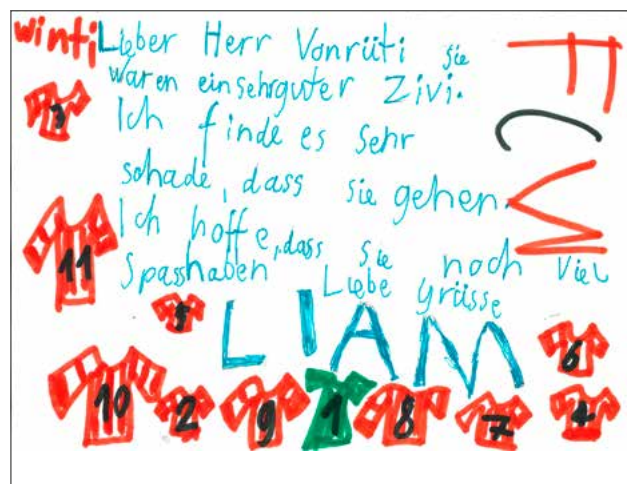 winti
Lieber Herr Vonrüti sie
waren einsehrguter Zivi.
Ich finde es sehr
schade, dass sie gehen.
Ich hoffe, dass sie noch viel
Spasshaben Liebe Grüsse
LIAM
FCW
3
11
5
6
10
2
9
1
8
7
4